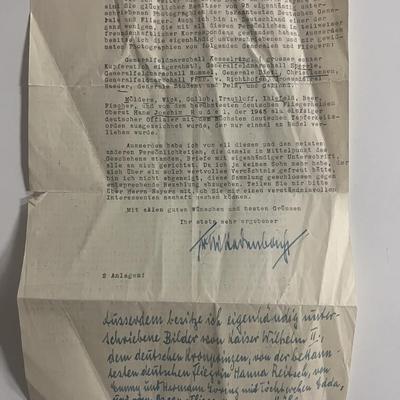 sind die glücklichen Besitzer von eigenhändig unter-
schriebenen Photographien der bekanntesten Deutschen Generäle
und Flieger. Auch ich bin in Deutschland einer der
ganz wenigen, die mit all diesen Persönlichkeiten in teilweiser
freundschaftlicher Korrespondenz gestanden haben und
besitze ich die eigenhändig unterschriebenen und mir gewid-
meten Photographien von folgenden Generälen und Fliegern:
Generalfeldmarschall Kesselring
Kupferstich eingerahmt, Generalfeldmarschall Sperrle,
Generalfeldmarschall Rommel, Generale Christiansen,
Generalfeldmarschall Richthofen,
Raeder, Generale Student, Pelz, und Galland.
Mölders, Wick, Gollob, Trautloft, Ihlefeld, Baer,
Fischer, und von dem bekanntesten deutschen Fliegerhelden
Oberst Hans Joachim Rudel, der als einzigster
deutscher Offizier mit dem höchsten deutschen Tapferkeits-
orden ausgezeichnet wurde, der nur einmal an Rudel ver-
liehen wurde.
Ausserdem habe ich von all diesen und den meisten
anderen Persönlichkeiten, die damals im Mittelpunkt des
Geschehens standen, Briefe mit eigenhändiger Unterschrift,
alle an mich gerichtet. Da ich ja keinen Sohn mehr habe, der
sich über ein solch wertvolles Vermächtnis gefreut hätte,
bin ich nicht abgeneigt, diese Sammlung geschlossen gegen
entsprechende Bezahlung abzugeben. Teilen Sie mir bitte
über Herrn Bauer mit, ob Sie mir einen verständnisvollen
Interessenten namhaft machen können.
Mit allen guten Wünschen und besten Grüssen
Ihr stets sehr ergebener
2 Anlagen!
Ausserdem besitze ich eigenhändig unter-
schriebene Bilder von Kaiser Wilhelm II.,
dem deutschen Kronprinzen, von der bekann-
testen deutschen Fliegerin Hanna Reitsch, von
Emmy und Hermann Göring mit Töchterchen Edda,